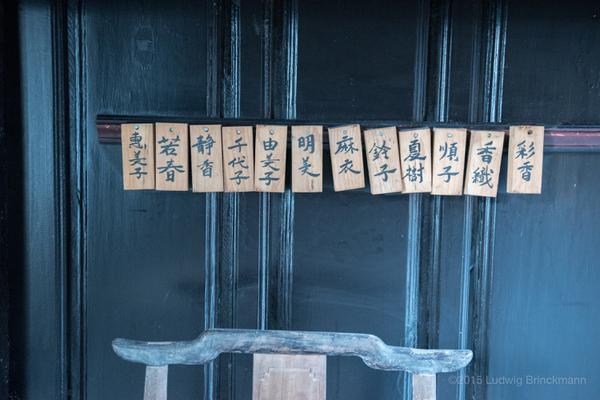 惠美子
若春
静香
千代子
由美子
明美
麻衣
鈴子
夏樹
順子
香織
彩香
©2015 Ludwig Brinckmann